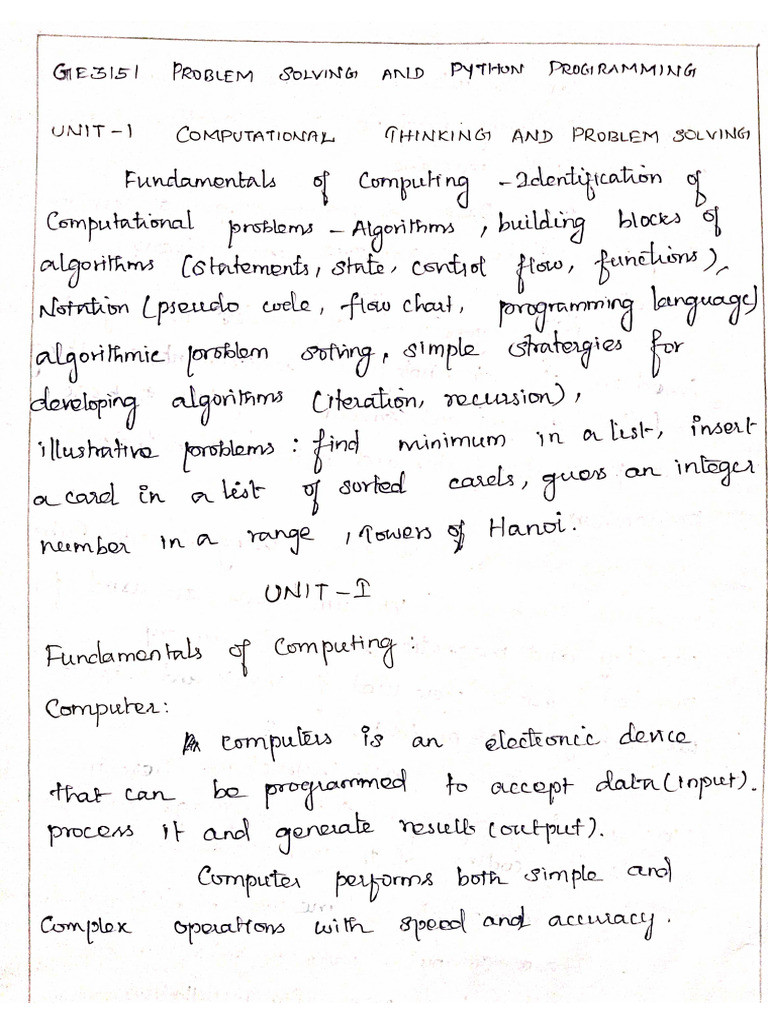 GE3151 PROBLEM SOLVING AND PYTHON PROGRAMMING
UNIT-1 COMPUTATIONAL THINKING AND PROBLEM SOLVING
Fundamentals of Computing - Identification of
Computational problems - Algorithms, building blocks of
algorithms (statements, state, control flow, functions),
Notation (pseudo code, flow chart, programming language)
algorithmic problem solving, simple stratergies for
developing algorithms (iteration, recursion),
illustrative problems: find minimum in a list, insert
a card in a list of sorted cards, guess an integer
number in a range, Towers of Hanoi.
UNIT-I
Fundamentals of Computing:
Computer:
computers is an electronic device
that can be programmed to accept data (input).
process it and generate result (output).
Computer performs both simple and
Complex operations with speed and accuracy.